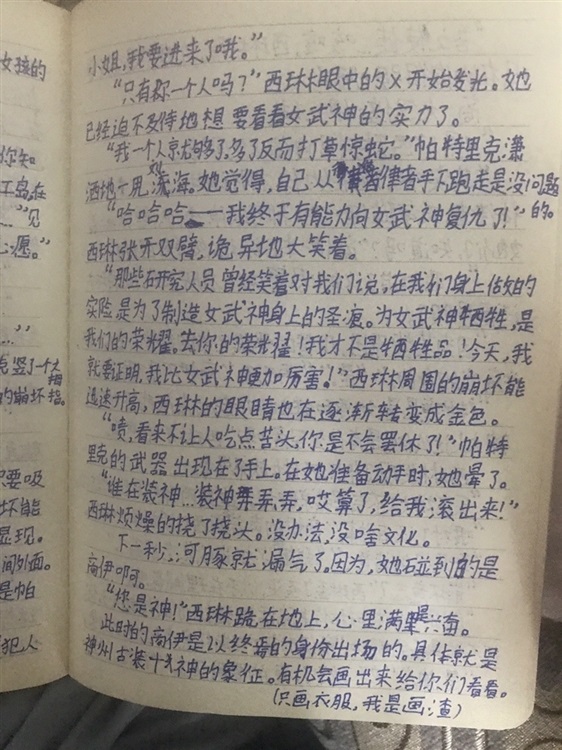 女孩的
你知
工岛,在
…”见
心愿。”
…”
竖了一个大拇指。
的崩坏
只要吸
坏能
显现。
间外面。
是帕
犯人
小姐,我要进来了哦。”
“只有你一个人吗?”西琳眼中的×开始发光。她
已经迫不及待地想要看看女武神的实力了。
“我一个人就够了,多了反而打草惊蛇。”帕特里克潇
洒地一甩波海。她觉得,自己从律者手下跑走是没问题的。
“哈哈哈——我终于有能力向女武神复仇了!”
西琳张开双臂,诡异地大笑着。
“那些研究人员曾经笑着对我们说,在我们身上做的
实险是为了制造女武神身上的圣痕。为女武神牺牲,是
我们的荣耀。去你的荣耀!我才不是牺牲品!今天,我
就要证明,我比女武神更加厉害!”西琳周围的崩坏能
迅速升高,西琳的眼睛也在逐渐转变成金色。
“啧,看来不让人吃点苦头,你是不会罢休了!”帕特
里克的武器出现在了手上。在她准备动手时,她晕了。
“谁在装神…装神弄弄弄,哎算了,给我滚出来!”
西琳烦燥的挠了挠头。没办法,没啥文化。
下一秒,河豚就漏气了。因为,她碰到的是
高伊叩可。
“您是神!”西琳跪在地上,心里满是兴奋。
此时的高伊是以终焉的身份出场的。具体就是
神州古装+神的象征。有机会画出来给你们看看。
(只画衣服,我是画渣)